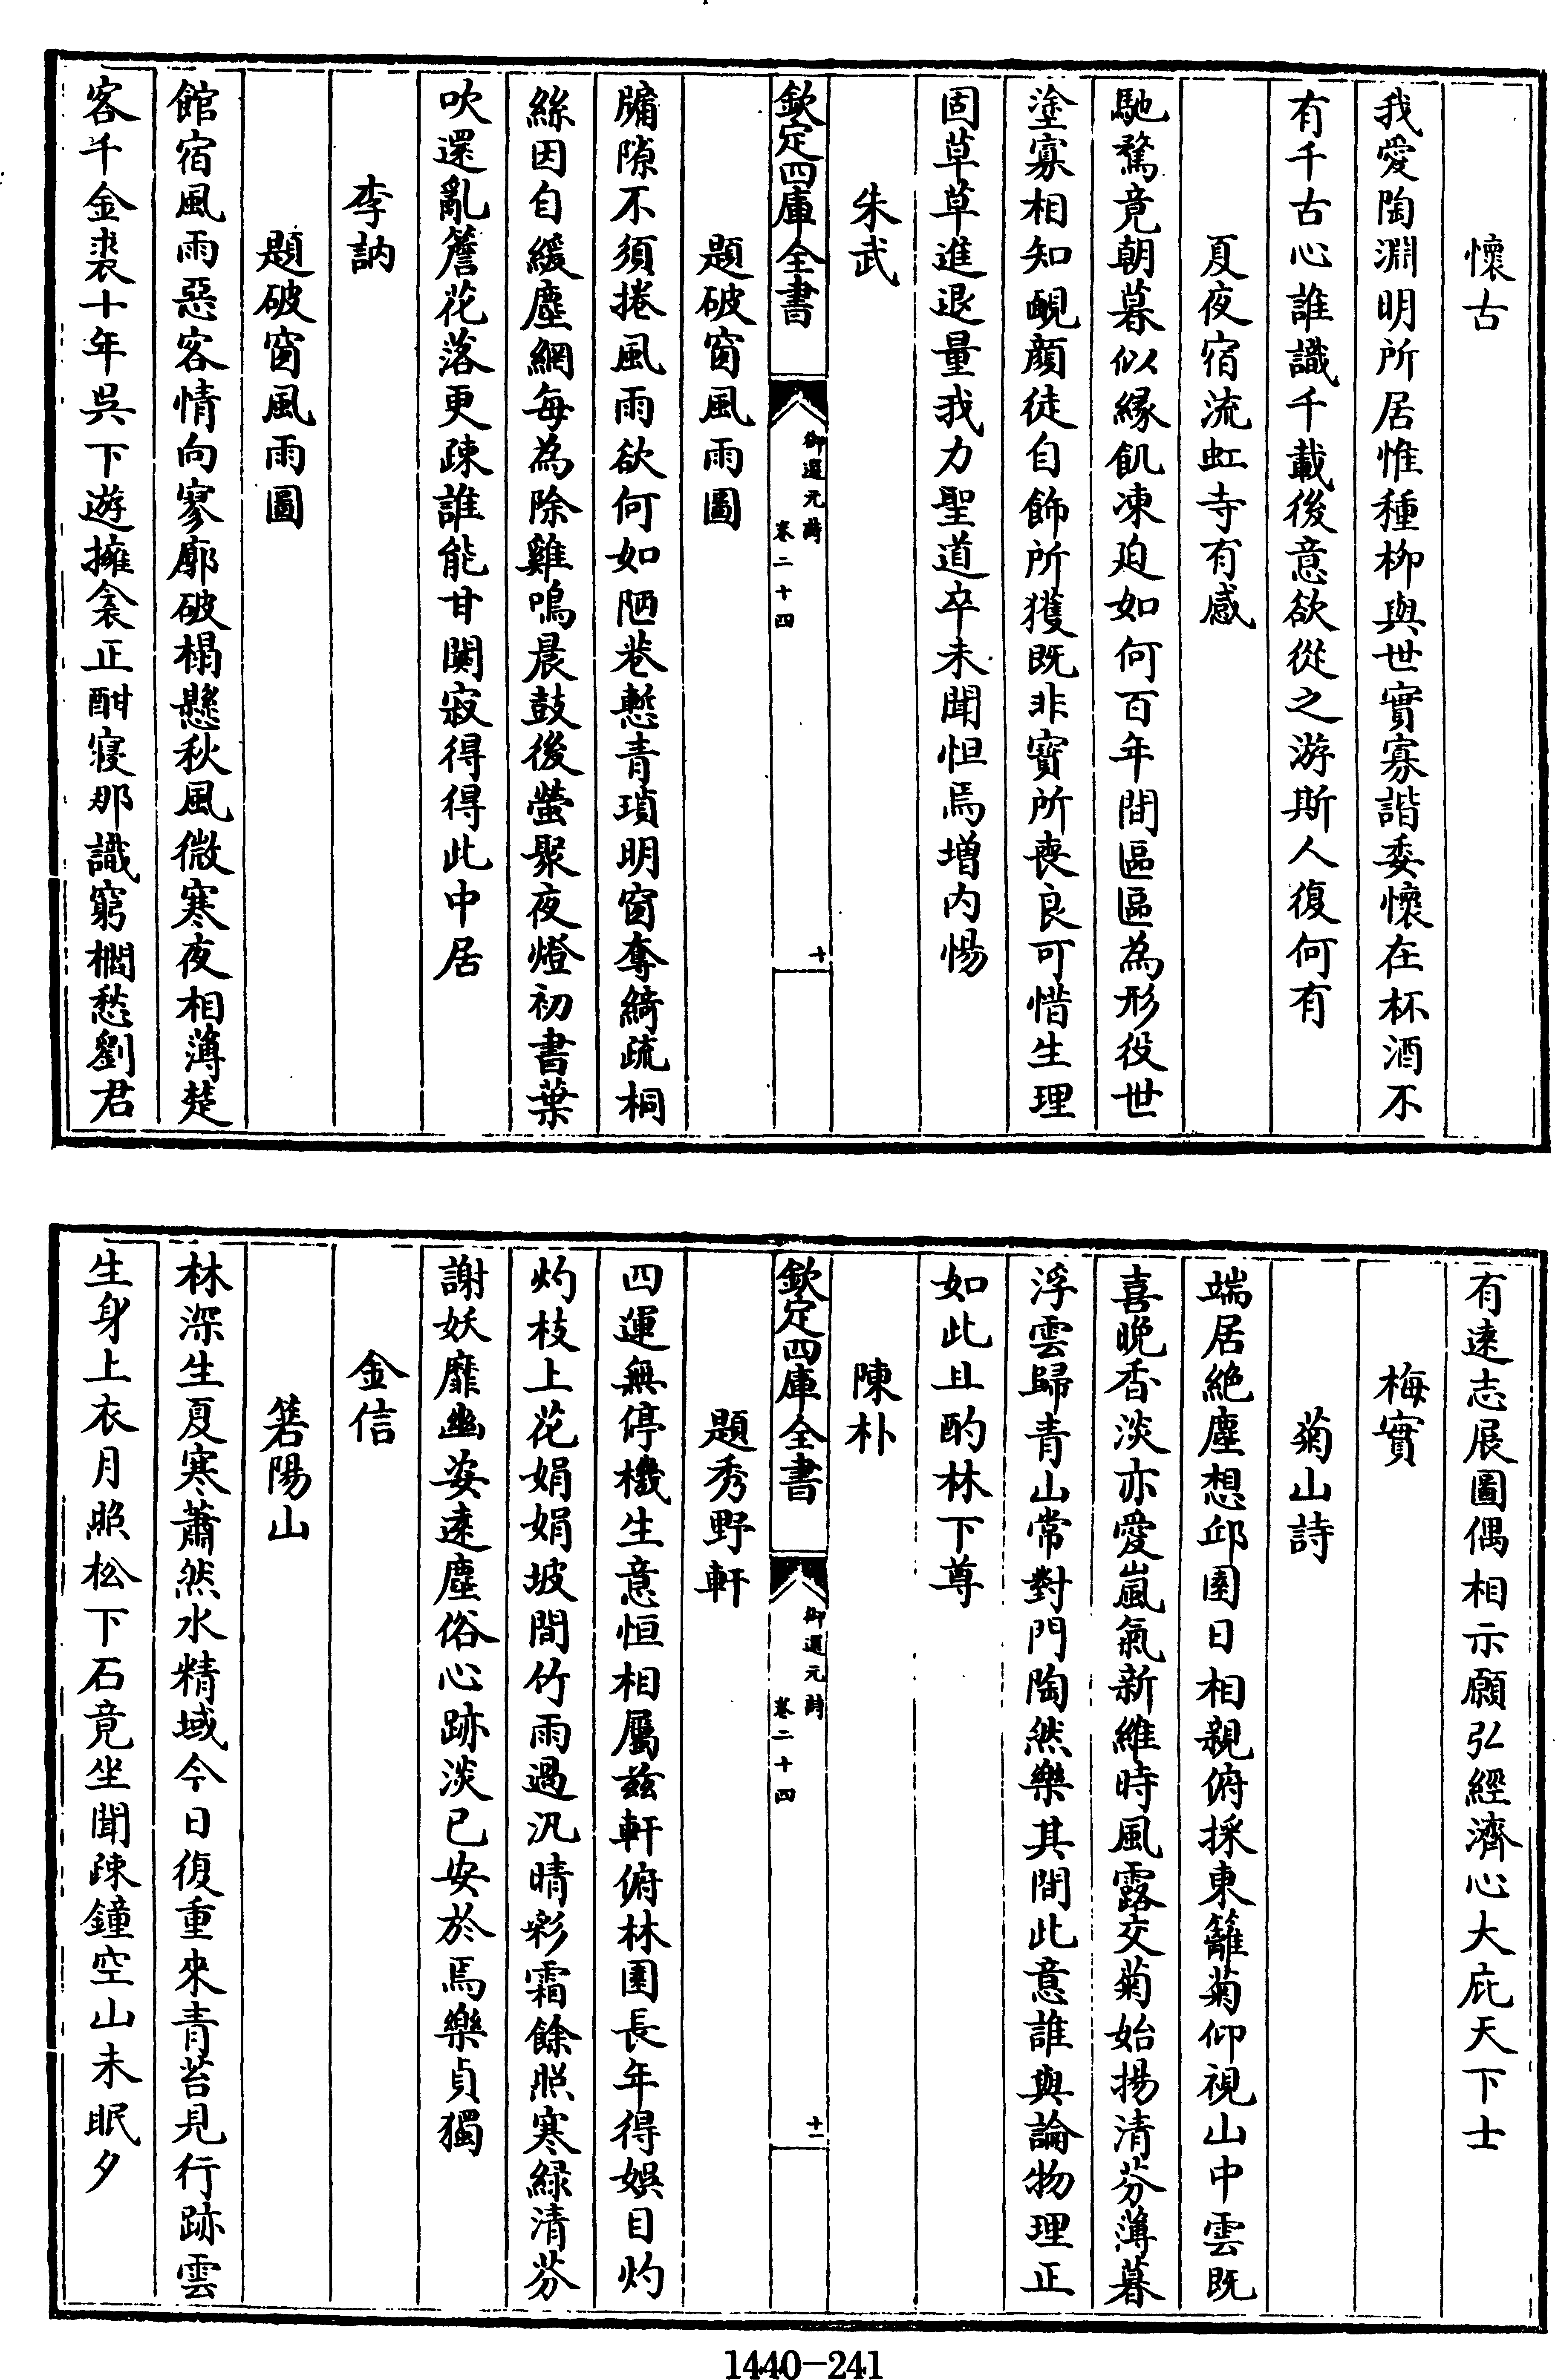 懷古
我愛陶淵明所居惟種柳與世實寡諧委懷在杯酒不
有千古心誰識千載後意欲從之游斯人復何有
夏夜宿流虹寺有感
馳騖竟朝暮似緣飢凍廹如何百年間區區為形役世
塗寡相知覥顔徒自飾所獲既非寶所喪良可惜生理
固草草進退量我力聖道卒未聞怛焉增内惕
朱武
欽定四庫全書
御選元詩
卷二十四
十
題破窗風雨圖
牖隙不須捲風雨欲何如陋巷慙青瑣明窗奪綺疏桐
絲因自緩塵網每為除雞鳴晨鼓後螢聚夜燈初書葉
吹還亂簷花落更疎誰能甘闃寂得得此中居
李訥
題破窗風雨圖
館宿風雨惡客情向寥廓破榻懸秋風微寒夜相薄楚
客千金裘十年吳下遊擁衾正酣寝那識窮櫩愁劉君
有逺志展圖偶相示願弘經濟心大庇天下士
梅實
菊山詩
端居絶塵想邱園日相親俯採東籬菊仰視山中雲既
喜晚香淡亦愛嵐氣新維時風露交菊始揚清芬薄暮
浮雲歸青山常對門陶然樂其間此意誰與論物理正
如此且酌林下尊
陳朴
欽定四庫全書
御選元詩
卷二十四
十一
題秀野軒
四運無停機生意恒相屬兹軒俯林園長年得娛目灼
灼枝上花娟娟坡間竹雨過汎晴彩霜餘照寒緑清芬
謝妖靡幽姿逺塵俗心跡淡已安於焉樂貞獨
金信
箬陽山
林深生夏寒蕭然水精域今日復重來青苔見行跡雲
生身上衣月照松下石竟坐聞疎鐘空山未眠夕
1440-241